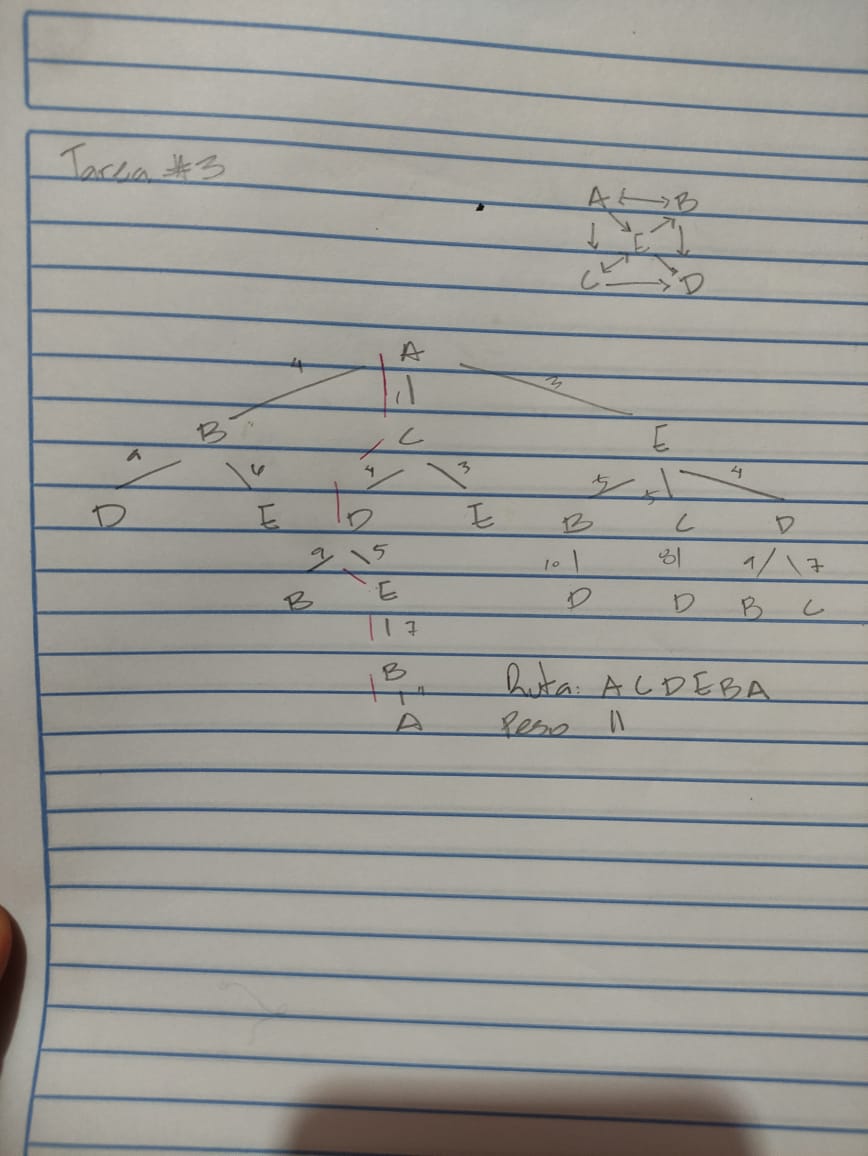 Tarea #3
A B
E
C D
A
4 1 3
B C E
9 6 4 3 5 5 4
D E D E B C D
9 5 10 8 9 7
B E D D B C
7
B
Ruta: ACDEBA
11
A
Peso 11